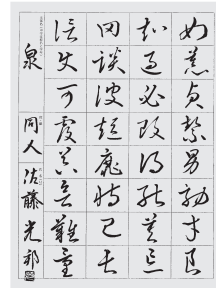 女慕貞絜男効才良
知過必改得能莫忘
罔談彼短靡恃己長
信使可覆器欲難量
泉 同人 佐藤光